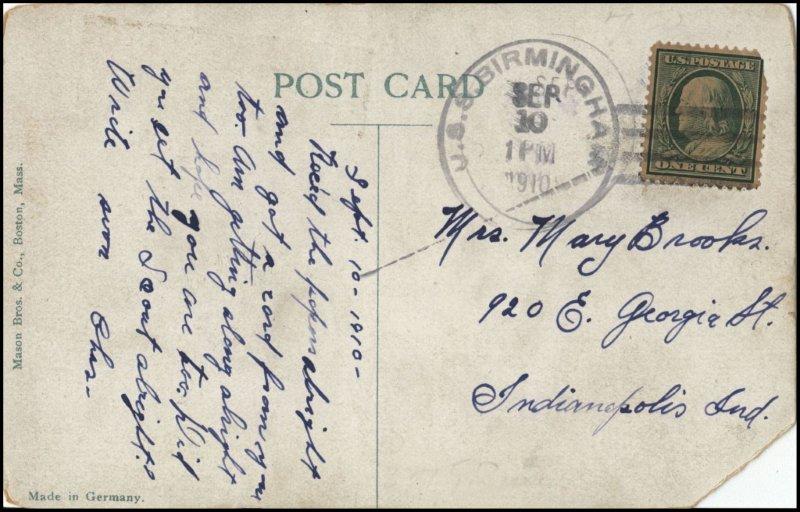 POST CARD
U.S.S. BIRMINGHAM
SEP
10
1 PM
1910
U.S. POSTAGE
ONE CENT
Mrs. Mary Brooks.
920 E. Georgia St.
Indianapolis Ind.
Sept. 10-1910-
Rec'd the papers alright
and got a card from you
too. Am getting along alright
and hope you are too. Did
you get the Scout alright?
Write soon Chas-
Mason Bros. & Co., Boston, Mass.
Made in Germany.